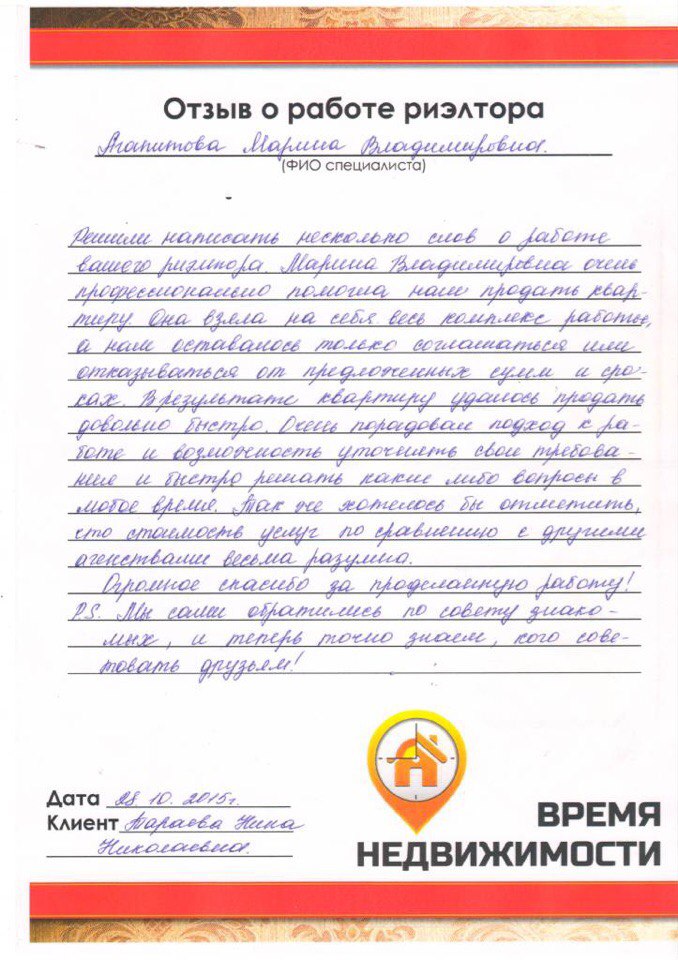 Отзыв о работе риэлтора
Агапитова Марина Владимировна.
(ФИО специалиста)
Решили написать несколько слов о работе
вашего риэлтора. Марина Владимировна очень
профессионально помогла нам продать квар-
тиру. Она взяла на себя весь комплекс работы,
а нам оставалось только соглашаться или
отказываться от предложенных сумм и сро-
ках. В результате квартиру удалось продать
довольно быстро. Очень порадовал подход к ра-
боте и возможность уточнять свои требова-
ния и быстро решать какие либо вопросы в
любое время. Так же хотелось бы отметить,
что стоимость услуг по сравнению с другими
агенствами весьма разумна.
Огромное спасибо за проделанную работу!
P.S. Мы сами обратились по совету знако-
мых, и теперь точно знаем, кого сове-
товать друзьям!
Дата 28.10.2015г.
Клиент Бараева Нина
Николаевна.
ВРЕМЯ
НЕДВИЖИМОСТИ